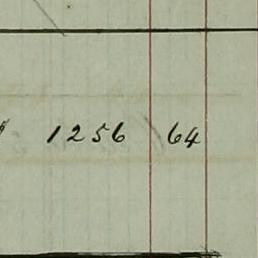 1256 64